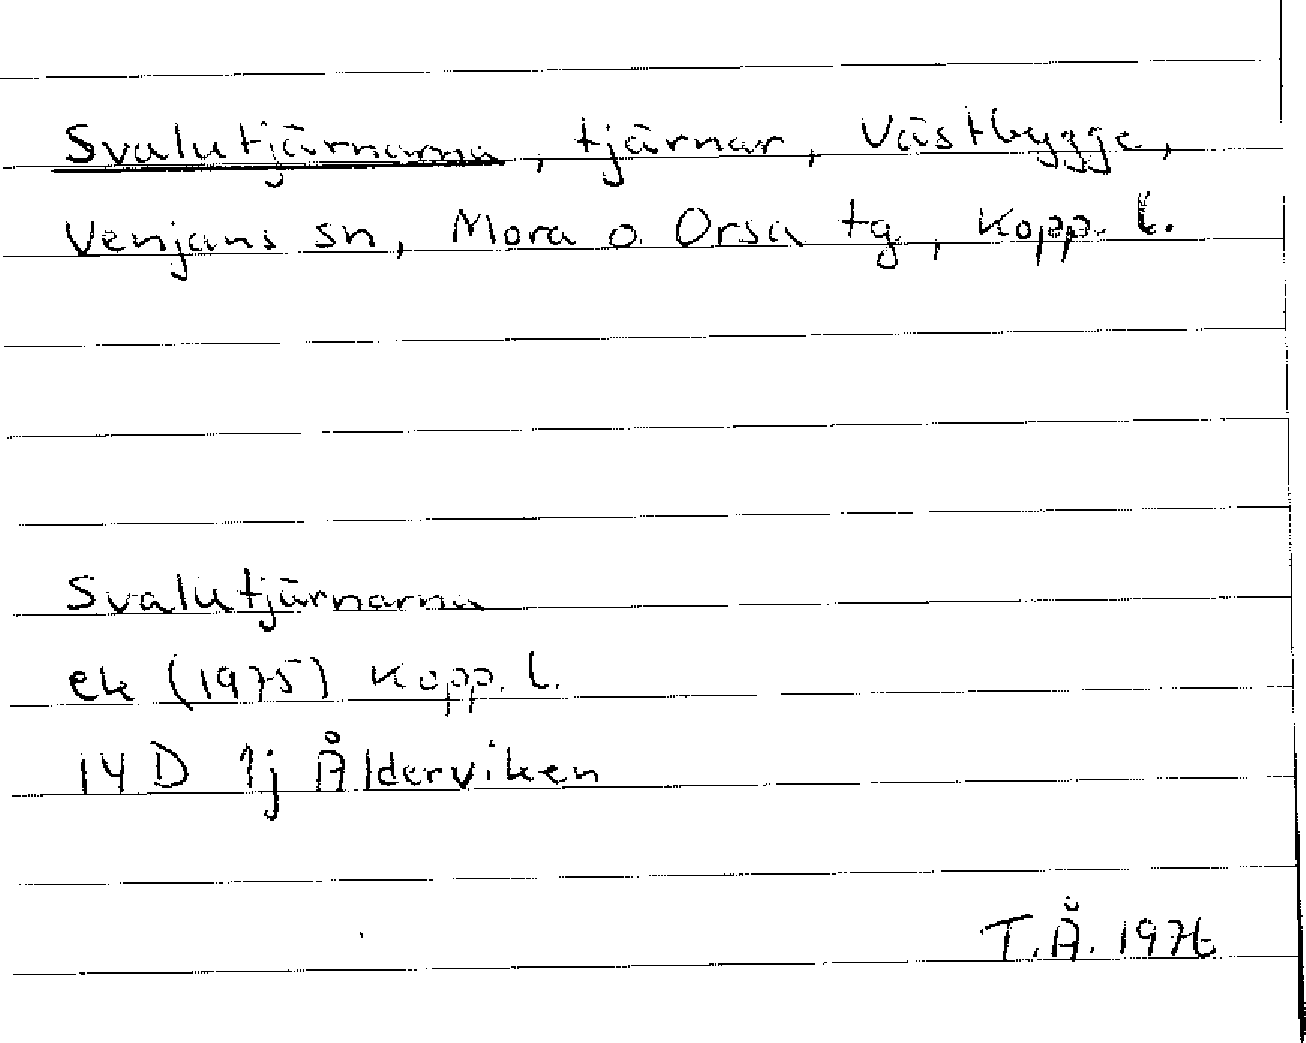 Svalutjärnarna, tjärnar, Västbygge,
Venjans sn, Mora o. Orsa tg, Kopp. l.
Svalutjärnarna
ek (1975) Kopp. l.
14 D 1j Ålderviken
T.Å. 1976